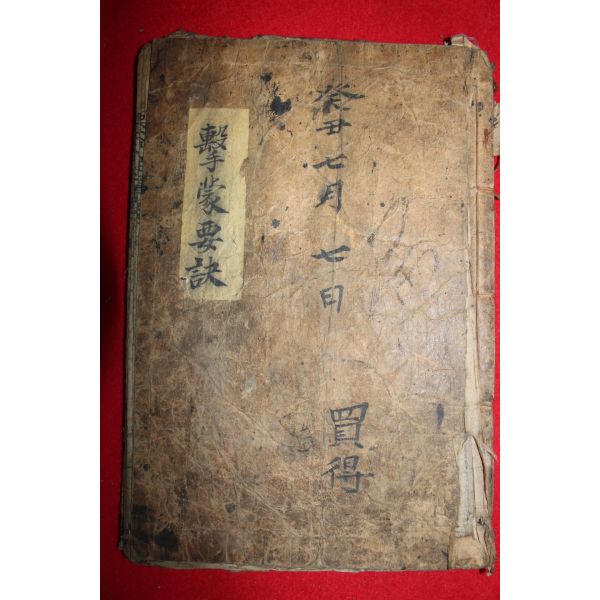 癸丑七月 七日 買得
擊蒙要訣